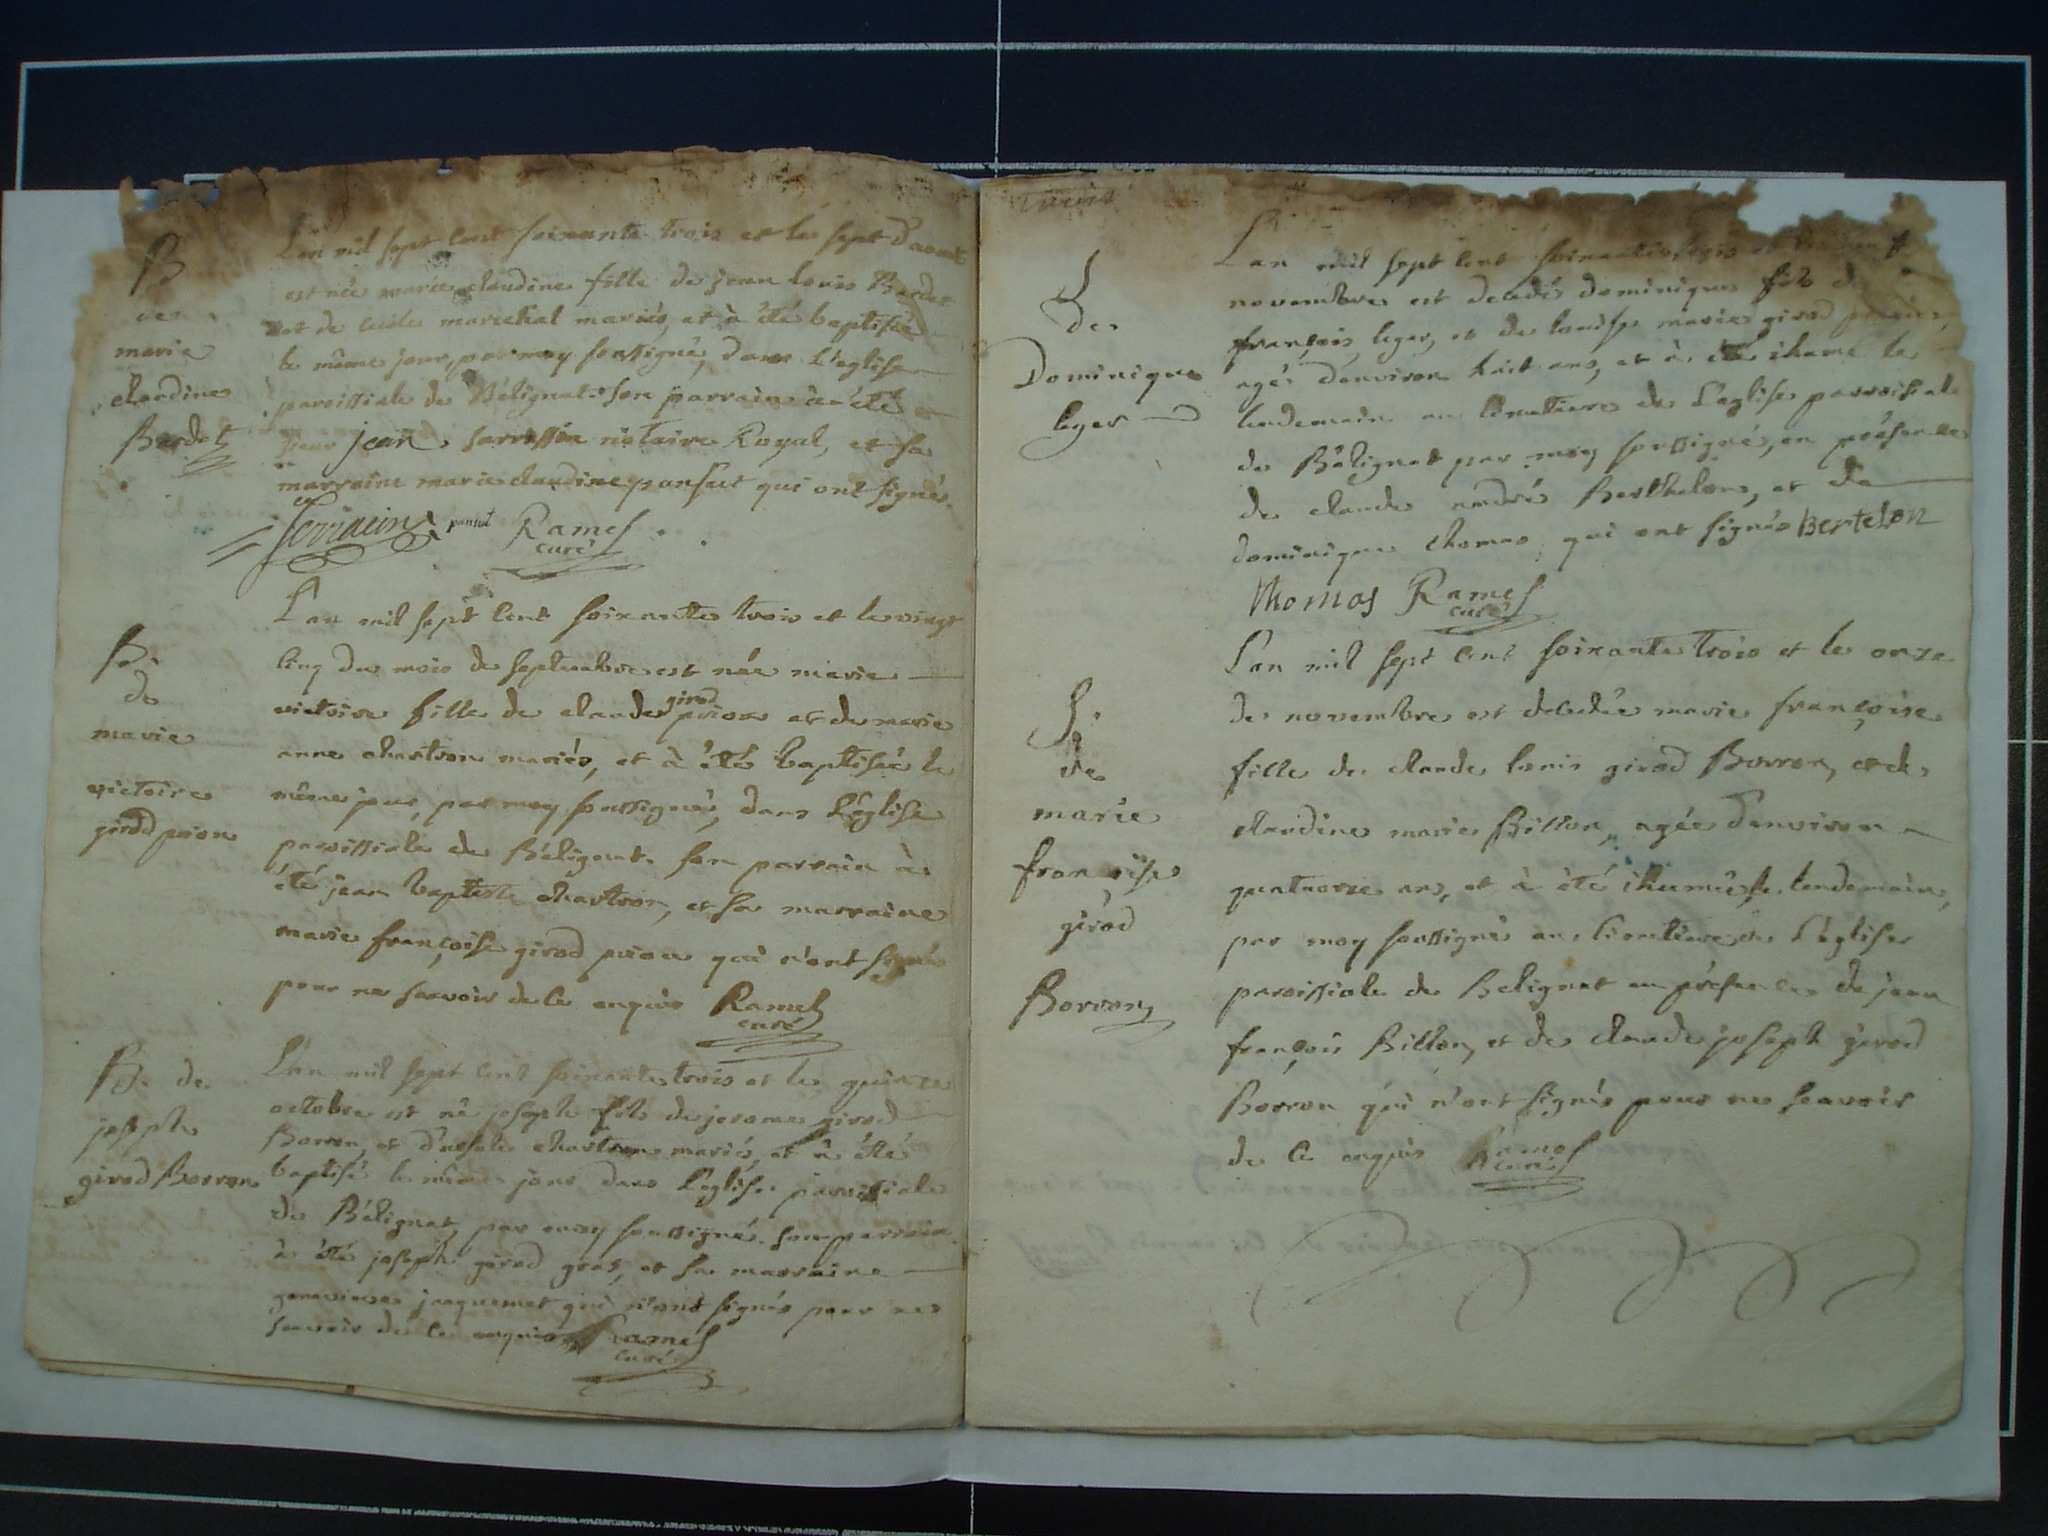 B
de
marie
claudine
Bardet
L'an mil sept cent soixante trois et le sept d'aout
est née marie claudine fille de jean louis Bardet
et de marechal mariés, et à été baptisée
le même jour, par moy soussigné, dans l'eglise
paroissiale de Bélignat. son parrain à été
sieur jean sarrassin notaire Royal, et sa
marraine marie claudine pansut qui ont signés
pansut Ramel
curé
B.
de
marie
victoire
girod prion
L'an mil sept cent soixante trois et le vingt
cinq du mois de septembre est née marie
victoire fille de claude girod prion et de marie
anne chartron mariés, et à été baptisée le
même jour, par moy soussigné, dans l'église
paroissiale de Bélignat. son parrain à
été jean baptiste chartron, et sa marraine
marie françoise girod prion qui n'ont signés
pour ne scavoir de ce enquis Ramel
curé
B. de
joseph
girod Borron
L'an mil sept cent soixante trois et le quinze
octobre est né joseph fils de jerome girod
Borron, et d' chartron mariés, et à été
baptisé le même jour dans l'eglise paroissiale
de Bélignat, par moy soussigné. son parrain
à été joseph girod gros, et sa marraine
genevieve jacquemet qui n'ont signés pour ne
scavoir de ce enquis Ramel
curé
S.
de
Dominique
leger
L'an mil sept cent soixante trois et
novembre est decedés dominique fils de
françois leger, et de louise marie girod
agé d'environ huit ans, et à été ihumé le
lendemain au cimetiere de l'eglise parroissiale
de Bélignat par moy soussigné, en présence
de claude andré Berthelon, et de
dominique thomas qui ont signés Bertelon
Thomas Ramel
curé
S.
de
marie
françoise
girod
Borron
L'an mil sept cent soixante trois et le onze
de novembre est decedée marie françoise
fille de claude louis girod Borron, et de
claudine marie Billon, agée d'environ
quatorze ans, et à été ihumée le lendemain,
par moy soussigné au cimetiere de l'église
paroissiale de Belignat en présence de jean
françois Billon, et de claude joseph girod
Borron qui n'ont signés pour ne scavoir
de ce enquis Ramel
curé